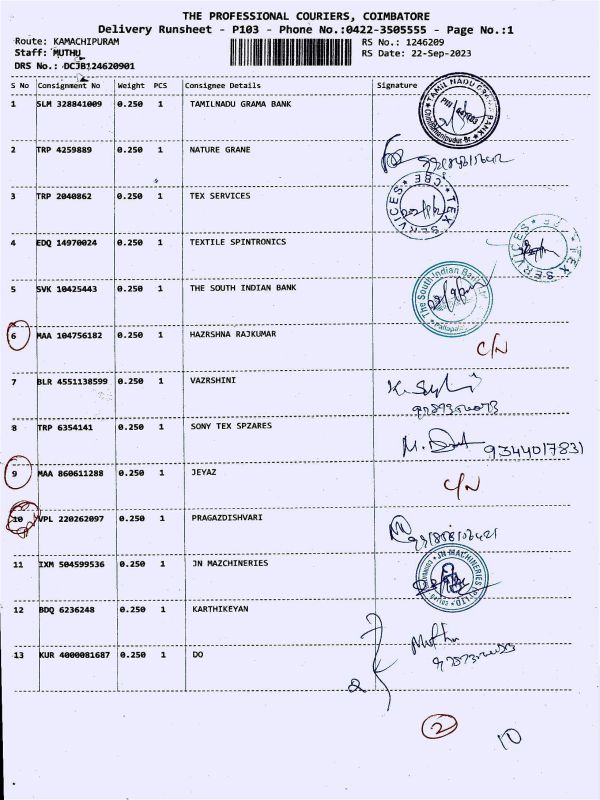 THE PROFESSIONAL COURIERS, COIMBATORE
Delivery Runsheet - P103 - Phone No.:0422-3505555 - Page No.:1
Route: KAMACHIPURAM RS No.: 1246209
Staff: MUTHU RS Date: 22-Sep-2023
DRS No.: DCJB124620901
S No Consignment No Weight PCS Consignee Details Signature
1 SLM 328841009 0.250 1 TAMILNADU GRAMA BANK
2 TRP 4259889 0.250 1 NATURE GRANE
3 TRP 2040862 0.250 1 TEX SERVICES TEX SERVICES * CBE *
4 EDQ 14970024 0.250 1 TEXTILE SPINTRONICS TEX SERVICES
5 SVK 10425443 0.250 1 THE SOUTH INDIAN BANK The South Indian Bank Ltd
6 MAA 104756182 0.250 1 HAZRSHNA RAJKUMAR C/N
7 BLR 4551138599 0.250 1 VAZRSHINI
8 TRP 6354141 0.250 1 SONY TEX SPZARES 9344017831
9 MAA 860611288 0.250 1 JEYAZ C/N
10 VPL 220262097 0.250 1 PRAGAZDISHVARI
11 IXM 504599536 0.250 1 JN MAZCHINERIES JN MACHINERIES
12 BDQ 6236248 0.250 1 KARTHIKEYAN
13 KUR 4000081687 0.250 1 DO
2 10